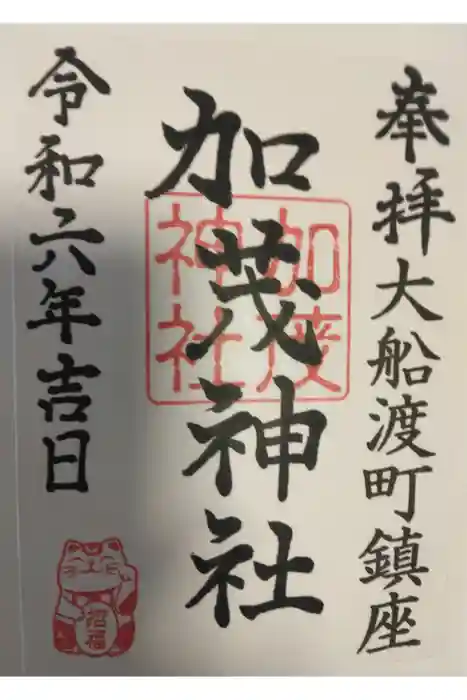 奉拝大船渡町鎮座
加茂神社
加茂
神社
令和六年吉日
招福